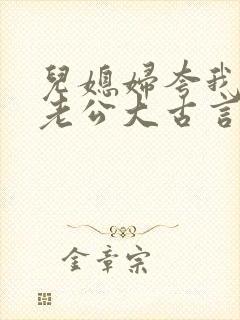 兒媳婦夸我
老公大古言
金章宗